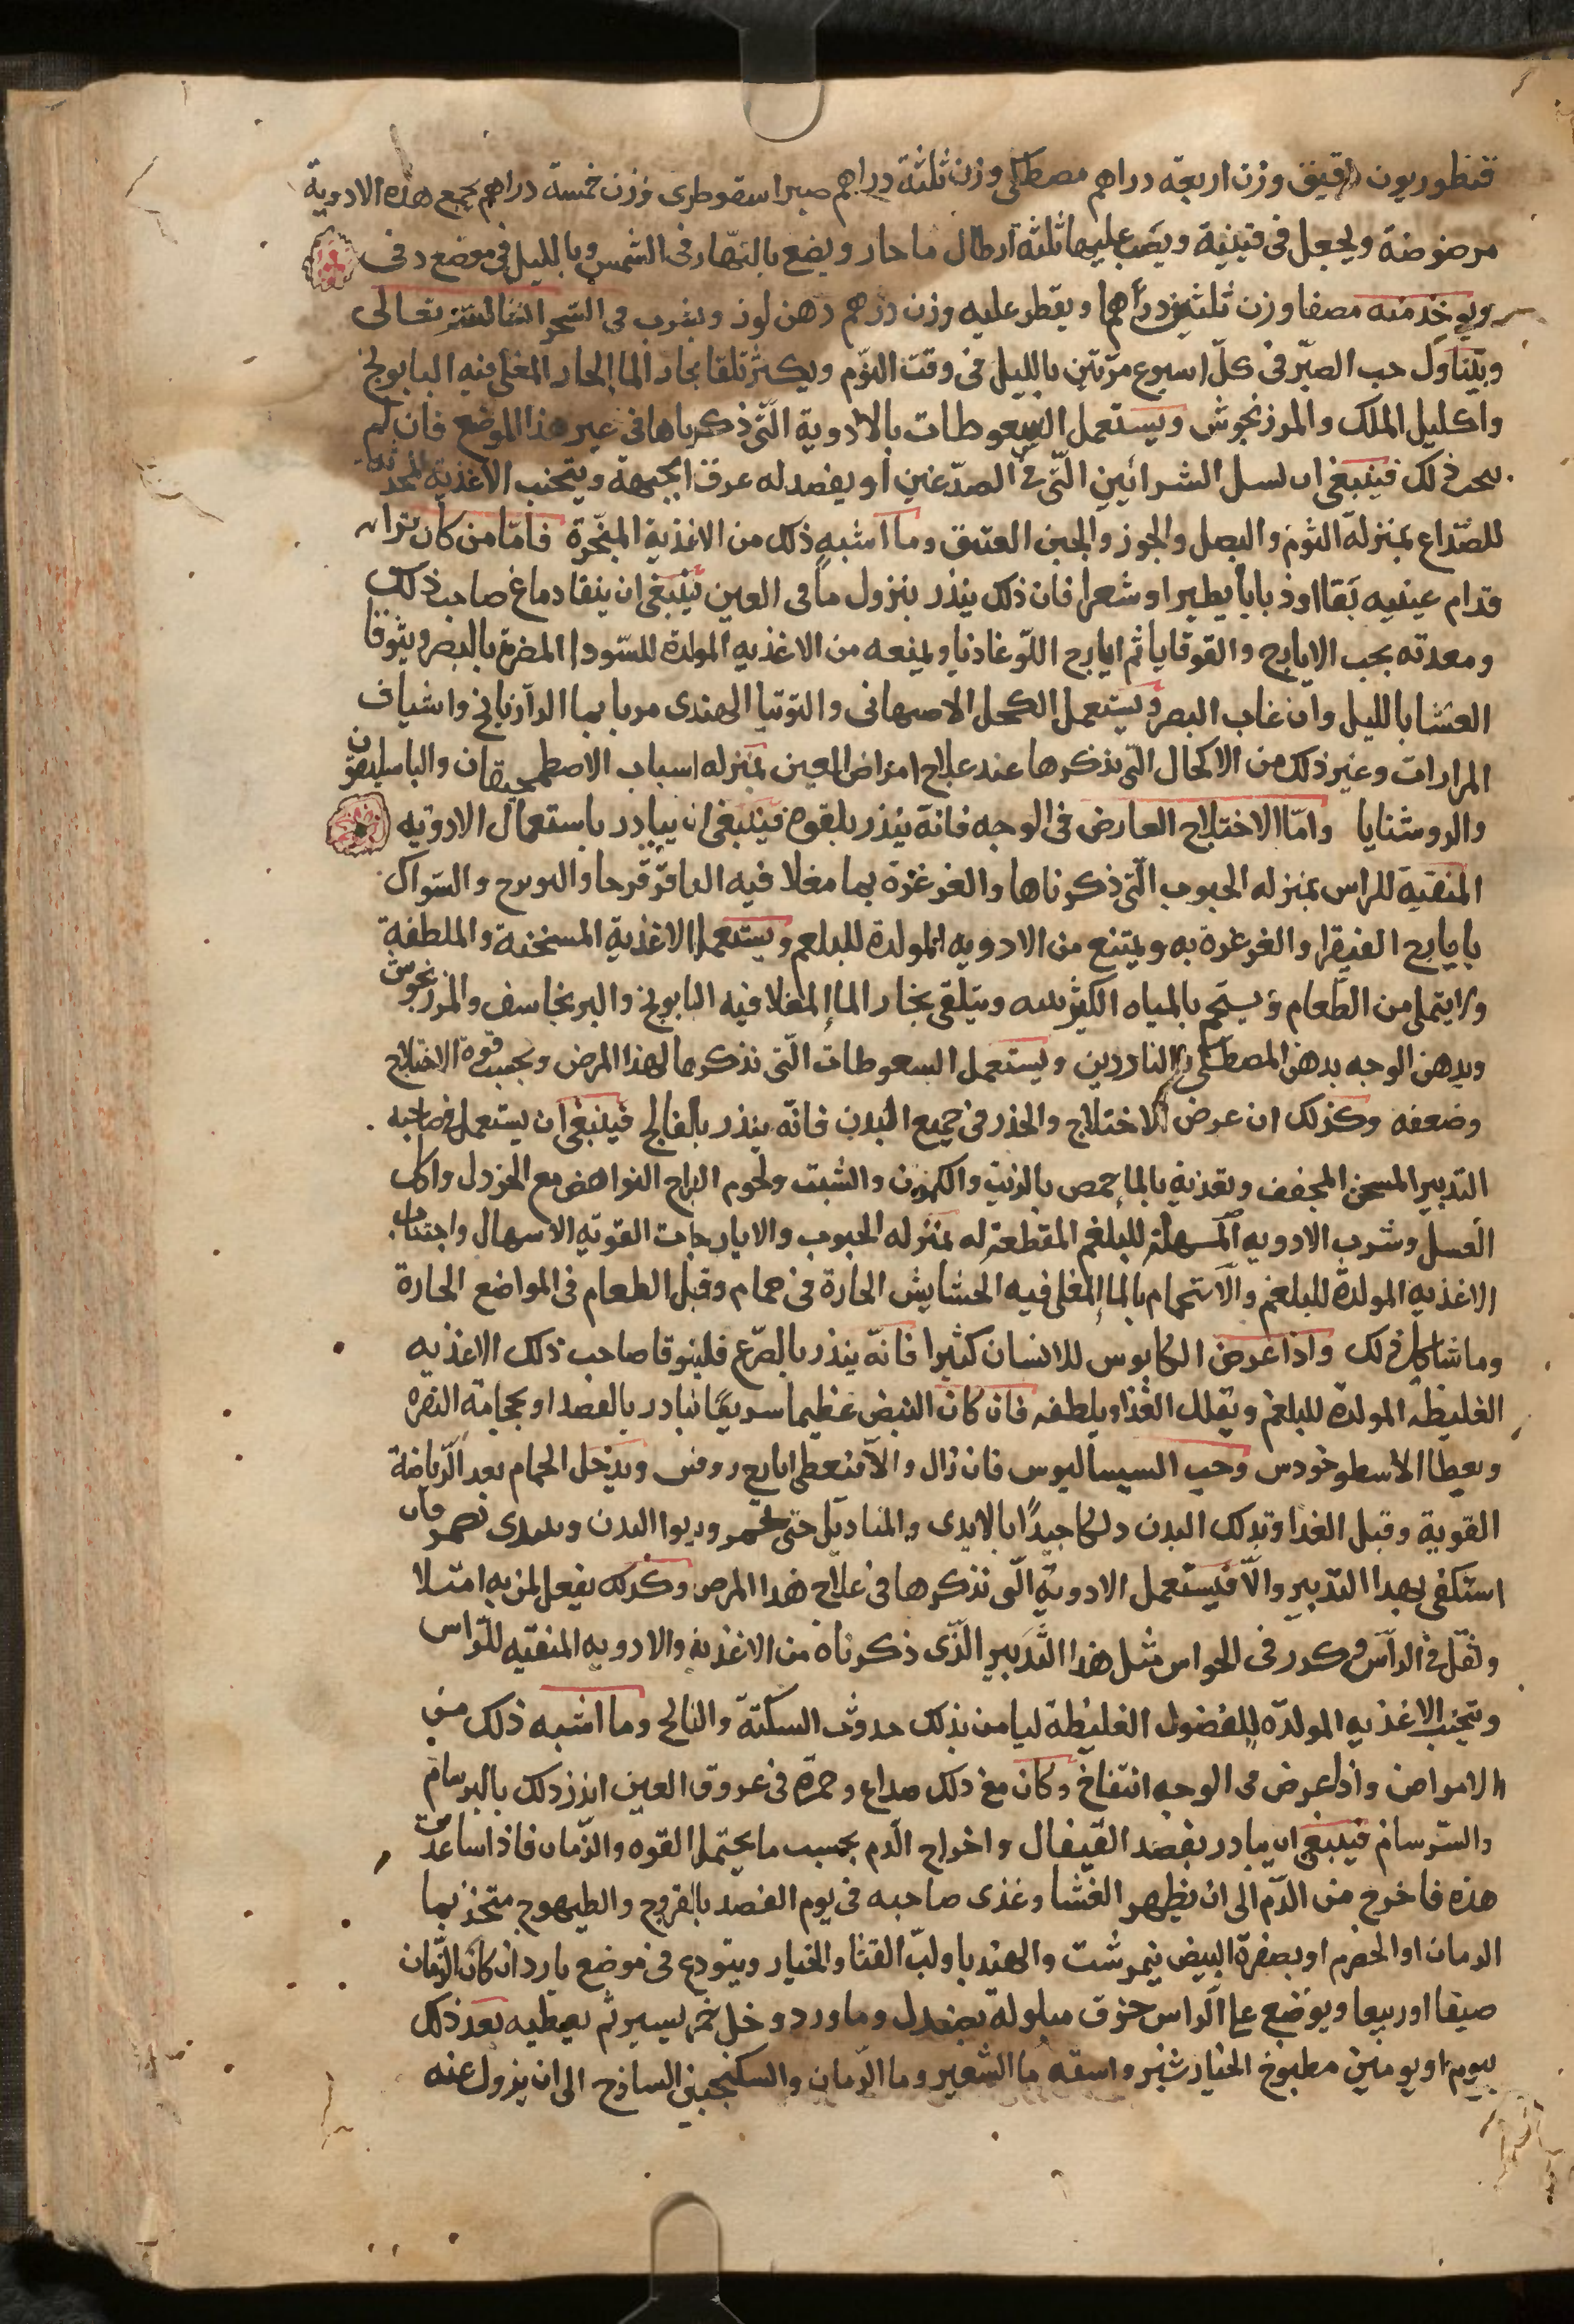 قنطوريون دقيق وزن اربعه دراهم مصطكى وزن ثلثة دراهم صبر اسقوطرى وزن خمسة دراهم يجمع هذه الادوية
مرضوضة ويجعل فى قنينية ويصب عليها ثلثة ارطال ما حار ويضع بالنهار فى الشمس وبالليل فى موضع دفى
ويوخذ منه مصفا وزن ثلثين درهما ويقطر عليه وزن درهم دهن لوز ويشرب فى السحر تعالى
ويتناول حب الصبر فى كل اسبوع مرتين بالليل فى وقت النوم ويكثر تلقا بخار الما الحار المغلى فيه البابونج
واكليل الملك والمرزنجوش ويستعمل السعوطات بالادوية التى ذكرناها فى غير هذا الموضع فان لم
ذلك فينبغى ان يسل الشرائين التى فى الصدغين او يفصد له عرق الجبهة ويتجنب الاغذية
للصداع بمنزلة الثوم والبصل والجوز والجبن العتيق وما اشبه ذلك من الاغذية المبخرة فاما من كان يرا
قدام عينيه بقا او ذبابا يطير او شعرا فان ذلك ينذر بنزول ما فى العين فينبغى ان ينقا دماغ صاحب ذلك
ومعدته بحب الايارج والقوقايا ثم ايارج اللوغاذيا ويمنعه من الاغذيه المولدة للسودا المضرة بالبصر ويتوقا
العشا بالليل وان غاب البصر ويستعمل الكحل الاصبهانى والتوتيا الهندى مربا بما الرازيانج واشياف
المرارات وغير ذلك من الاكحال التى نذكرها عند علاج امراض العين بمنزله اسباب الاصطمخيقان والباسليقون
والروشنايا واما الاختلاج العارض فى الوجه فانه ينذر بلقوة فينبغى ان يبادر باستعمال الادويه
المنقية للراس بمنزله الحبوب التى ذكرناها والغرغرة بما مغلا فيه العاقرقرحا والسواك
بايارج الفيقرا والغرغرة به ويمتنع من الادويه المولدة للبلغم ويستعمل الاغذية المسخنة والملطفة
ولا يتملى من الطعام ويستحم بالمياه ويتلقى بخار الما المغلا فيه البابونج والبرنجاسف والمرزنجوش
ويدهن الوجه بدهن المصطكى والناردين ويستعمل السعوطات التى نذكرها لهذا المرض وبحسب قوة الاختلاج
وضعفه وكذلك ان عرض الاختلاج والخدر فى جميع البدن فانه ينذر بالفالج فينبغى ان يستعمل صاحبه
التدبير المسخن المجفف وتغذيه بالما حمص بالزيت والكمون والشبت ولحوم النواهض مع الخردل واكل
العسل وشرب الادويه المسهلة للبلغم المقطعة له بمنزله الحبوب والايارجات القويه الاسهال واجتناب
الاغذيه المولدة للبلغم والاستحمام بالما المغلى فيه الحشايش الحارة فى حمام وقبل الطعام فى المواضع الحارة
وما شاكل ذلك واذا عرض الكابوس للانسان كثيرا فانه ينذر بالصرع فليتوقا صاحب ذلك الاغذيه
الغليظه المولدة للبلغم ويقلل الغذا ويلطفه فان كان النبض عظيما سريعا فبادر بالفصد او بحجامة النقره
ويعطا الاسطوخودس وحب السيساليوس فان زال والا فيعطى ايارج روفس ويدخل الحمام بعد الرياضة
القوية وقبل الغدا وتدلك البدن دلكا جيدا بالايدى والمناديل حتى يحمر ويربوا البدن فان
استكفى بهذا التدبير والا فيستعمل الادوية التى نذكرها فى علاج هذا المرض وكذلك يفعل لمن به امتلا
وثقل فى الراس وكدر فى الحواس مثل هذا التدبير الذى ذكرناه من الاغذية والادويه المنقيه للراس
وتجنب الاغذيه المولدة للفضول الغليظة ليامن بذلك حدوث السكتة والفالج وما اشبه ذلك من
الامراض واذا عرض فى الوجه انتفاخ وكان مع ذلك صداع وحمرة فى عروق العين انذر ذلك بالبرسام
والسرسام فينبغى ان يبادر بفصد القيفال واخراج الدم بحسب ما يحتمل القوه والزمان فاذا ساعدت
هذه فاخرج من الدم الى ان يظهر الغشا وغذى صاحبه فى يوم الفصد بالفروج والطيهوج متخذ بما
الرمان او الحصرم او بصفرة البيض نيمرشت والهندبا ولب القثا والخيار ويتودع فى موضع بارد ان كان الزمان
صيفا او ربيعا ويوضع على الراس خرق مبلولة بصندل وما ورد وخل خمر يسير ثم يعطيه بعد ذلك
بيوم او يومين مطبوخ الخيارشنبر واسقه ما الشعير وما الرمان والسكنجبين الساذج الى ان يزول عنه